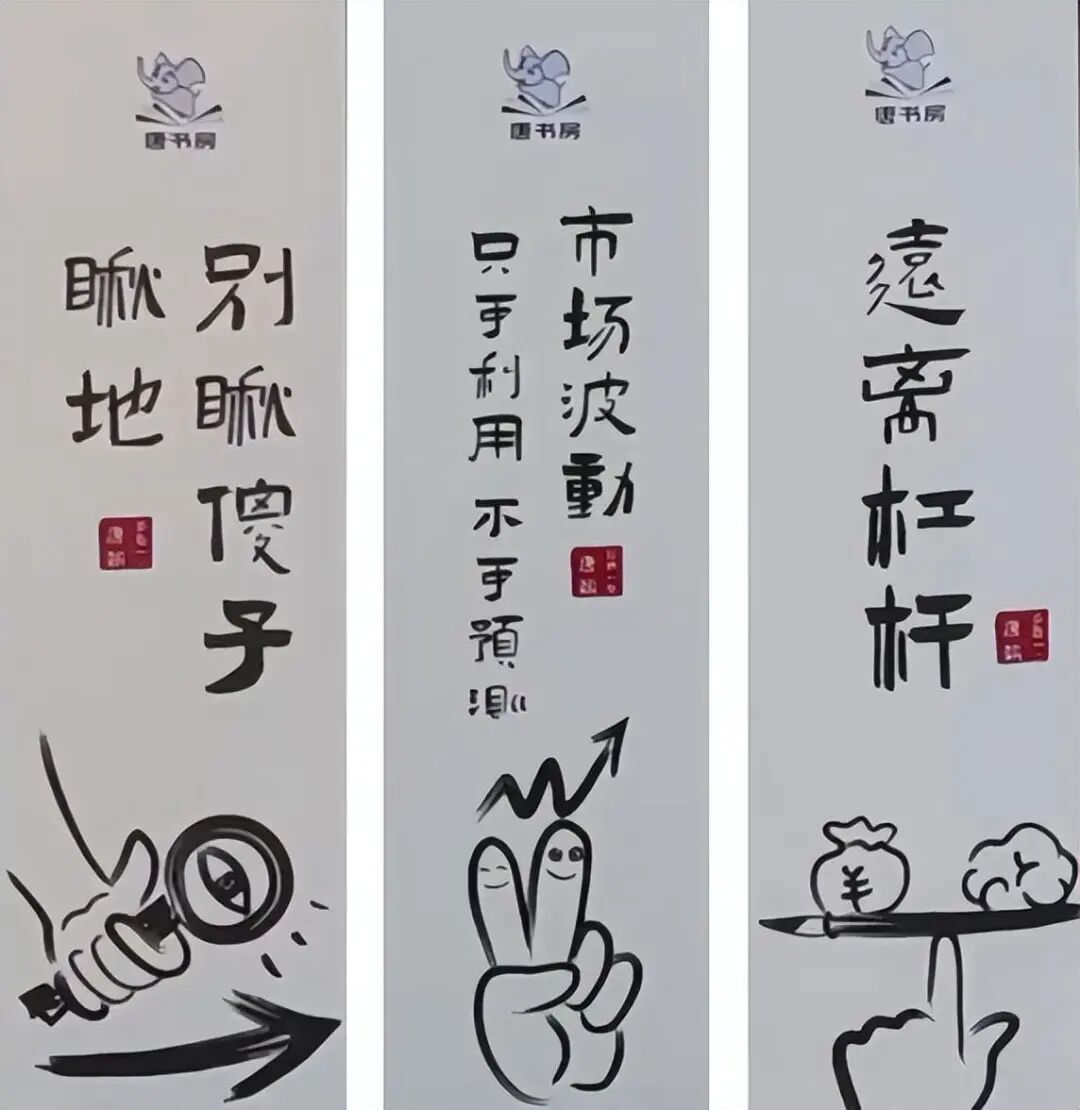 唐书房
别瞅傻子
瞅地
唐书房
市场波動
只予利用 不予預測
唐书房
遠离杠杆
¥